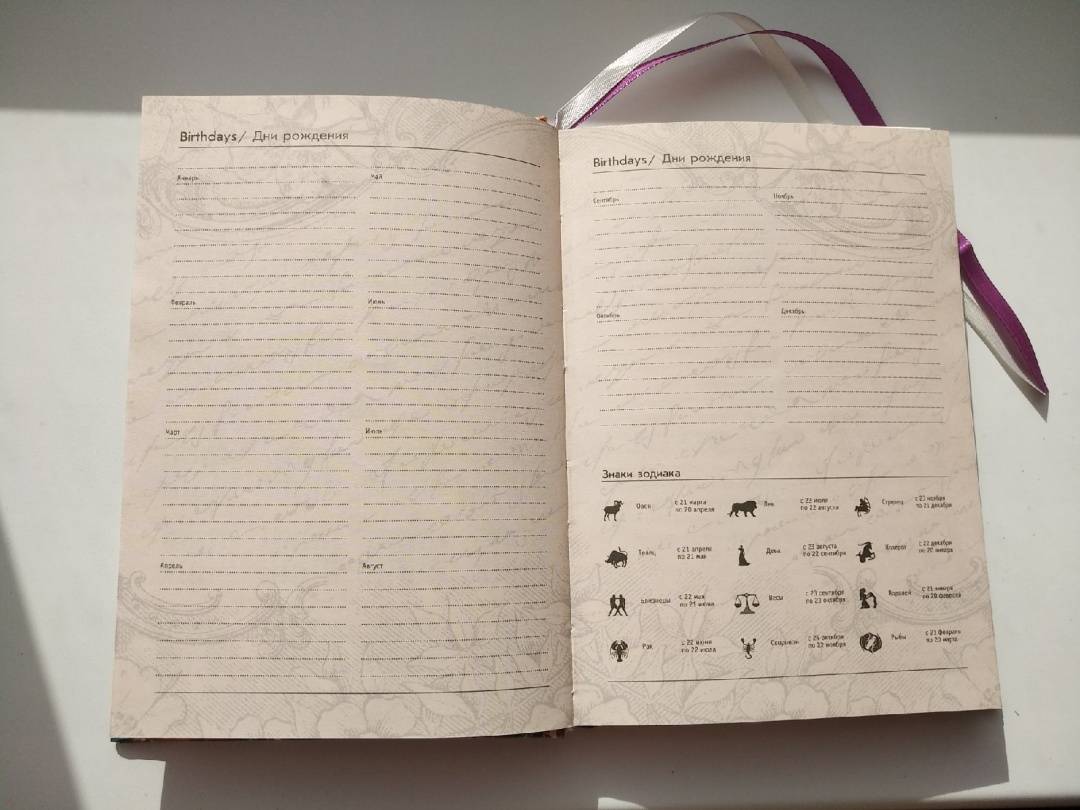 Birthdays/ Дни рождения
Январь
Май
Февраль
Июнь
Март
Июль
Апрель
Август
Birthdays/ Дни рождения
Сентябрь
Ноябрь
Октябрь
Декабрь
Знаки зодиака
Овен
с 21 марта
по 20 апреля
Лев
с 23 июля
по 22 августа
Стрелец
с 23 ноября
по 21 декабря
Телец
с 21 апреля
по 21 мая
Дева
с 23 августа
по 22 сентября
Козерог
с 22 декабря
по 20 января
Близнецы
с 22 мая
по 21 июня
Весы
с 23 сентября
по 23 октября
Водолей
с 21 января
по 20 февраля
Рак
с 22 июня
по 22 июля
Скорпион
с 24 октября
по 22 ноября
Рыбы
с 21 февраля
по 20 марта